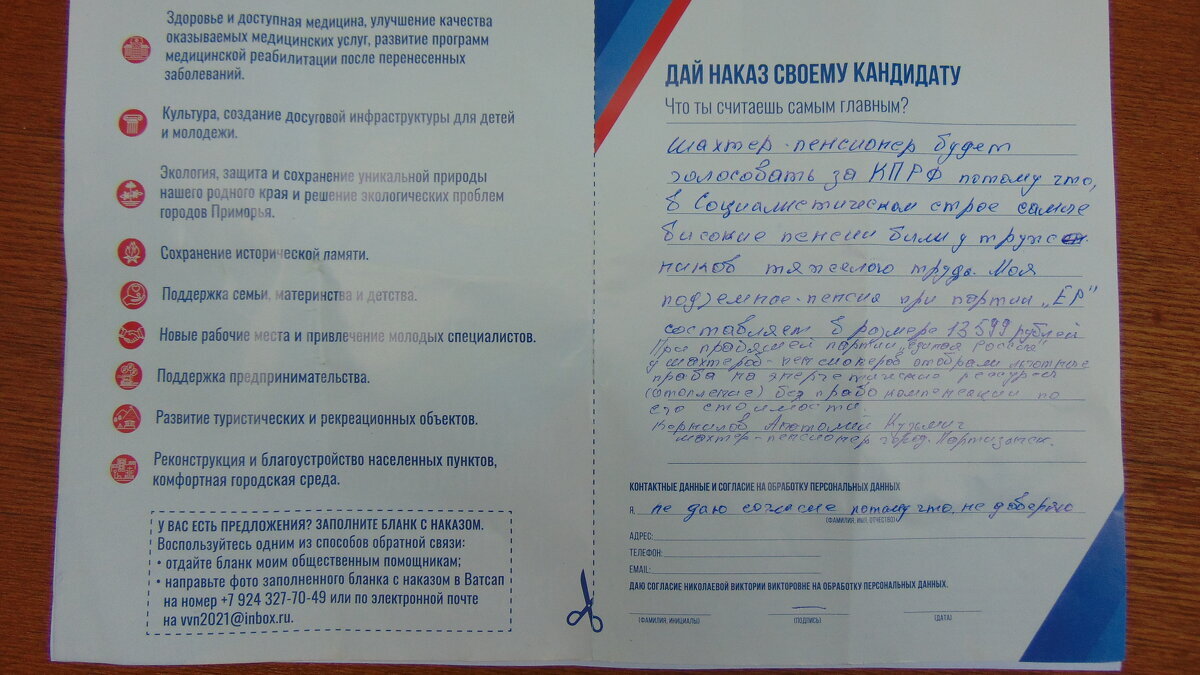 Здоровье и доступная медицина, улучшение качества
оказываемых медицинских услуг, развитие программ
медицинской реабилитации после перенесенных
заболеваний.
Культура, создание досуговой инфраструктуры для детей
и молодежи.
Экология, защита и сохранение уникальной природы
нашего родного края и решение экологических проблем
городов Приморья.
Сохранение исторической памяти.
Поддержка семьи, материнства и детства.
Новые рабочие места и привлечение молодых специалистов.
Поддержка предпринимательства.
Развитие туристических и рекреационных объектов.
Реконструкция и благоустройство населенных пунктов,
комфортная городская среда.
У ВАС ЕСТЬ ПРЕДЛОЖЕНИЯ? ЗАПОЛНИТЕ БЛАНК С НАКАЗОМ.
Воспользуйтесь одним из способов обратной связи:
• отдайте бланк моим общественным помощникам;
• направьте фото заполненного бланка с наказом в Ватсап
на номер +7 924 327-70-49 или по электронной почте
на vvn2021@inbox.ru.
ДАЙ НАКАЗ СВОЕМУ КАНДИДАТУ
Что ты считаешь самым главным?
Шахтер-пенсионер будет
голосовать за КПРФ потому что,
в Социалистическом строе самые
высокие пенсии были у тружен-
ников тяжелого труда. Моя
подземное-пенсия при партии „ЕР"
составляет в размере 13599 рублей
При правящей партии „единая Россия"
у шахтеров-пенсионеров отобрали льготные
права на энергетические ресурсы
(отопление) без право компенсации по
его стоимости.
Анатолий Кузьмич
шахтер-пенсионер город. Партизанск.
КОНТАКТНЫЕ ДАННЫЕ И СОГЛАСИЕ НА ОБРАБОТКУ ПЕРСОНАЛЬНЫХ ДАННЫХ
Я, не даю согласие потому что, не доверяю
(ФАМИЛИЯ, ИМЯ, ОТЧЕСТВО)
АДРЕС:
ТЕЛЕФОН:
EMAIL:
ДАЮ СОГЛАСИЕ НИКОЛАЕВОЙ ВИКТОРИИ ВИКТОРОВНЕ НА ОБРАБОТКУ ПЕРСОНАЛЬНЫХ ДАННЫХ.
(ФАМИЛИЯ, ИНИЦИАЛЫ) (ПОДПИСЬ) (ДАТА)